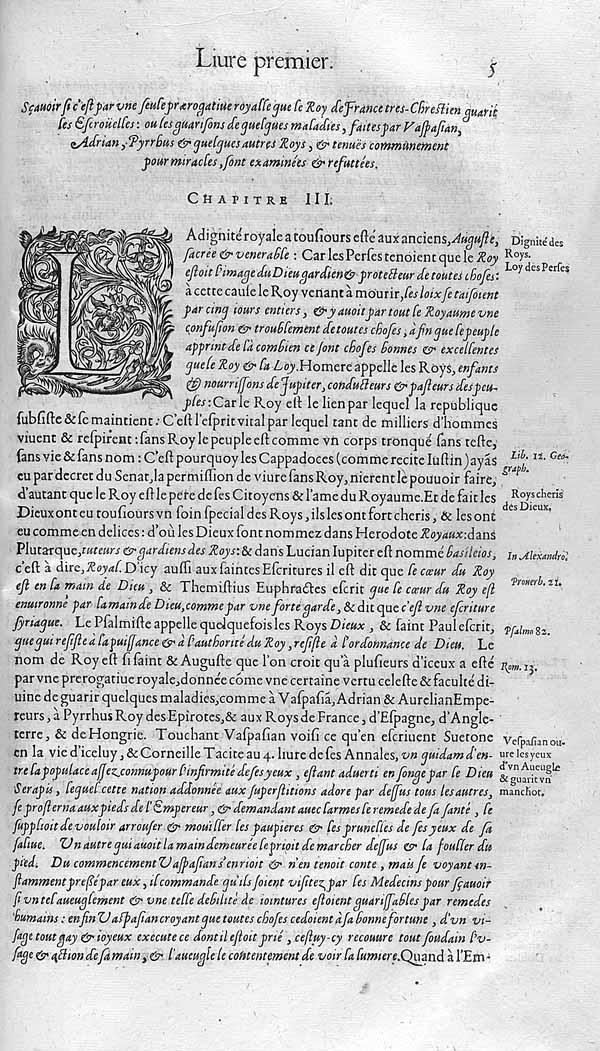 Liure premier. 5
Sçauoir si c'est par vne seule prærogatiue royalle que le Roy de France tres-Chrestien guarit
les Escroüelles: ou les guarisons de quelques maladies, faites par Vaspasian,
Adrian, Pyrrhus & quelques autres Roys, & tenuës communement
pour miracles, sont examinées & refuttées.
CHAPITRE III.
LA dignité royale a tousiours esté aux anciens, Auguste,
sacrée & venerable: Car les Perses tenoient que le Roy
estoit l'image du Dieu gardien & protecteur de toutes choses:
à cette cause le Roy venant à mourir, ses loix se taisoient
par cinq iours entiers, & y auoit par tout le Royaume vne
confusion & troublement de toutes choses, à fin que le peuple
apprint de là combien ce sont choses bonnes & excellentes
que le Roy & la Loy. Homere appelle les Roys, enfants
& nourrissons de Iupiter, conducteurs & pasteurs des peu-
ples: Car le Roy est le lien par lequel la republique
subsiste & se maintient: C'est l'esprit vital par lequel tant de milliers d'hommes
viuent & respirent: sans Roy le peuple est comme vn corps tronqué sans teste,
sans vie & sans nom: C'est pourquoy les Cappadoces (comme recite Iustin) ayãs
eu par decret du Senat, la permission de viure sans Roy, nierent le pouuoir faire,
d'autant que le Roy est le pere de ses Citoyens & l'ame du Royaume. Et de fait les
Dieux ont eu tousiours vn soin special des Roys, ils les ont fort cheris, & les ont
eu comme en delices: d'où les Dieux sont nommez dans Herodote Royaux: dans
Plutarque, tuteurs & gardiens des Roys: & dans Lucian Iupiter est nommé basileios,
c'est à dire, Royal. D'icy aussi aux saintes Escritures il est dit que le cœur du Roy
est en la main de Dieu, & Themistius Euphractes escrit que le cœur du Roy est
enuironné par la main de Dieu, comme par vne forte garde, & dit que c'est vne escriture
syriaque. Le Psalmiste appelle quelquefois les Roys Dieux, & saint Paul escrit,
que qui resiste à la puissance & à l'authorité du Roy, resiste à l'ordonnance de Dieu. Le
nom de Roy est si saint & Auguste que l'on croit qu'à plusieurs d'iceux a esté
par vne prerogatiue royale, donnée cóme vne certaine vertu celeste & faculté di-
uine de guarir quelques maladies, comme à Vaspasiã, Adrian & Aurelian Empe-
reurs, à Pyrrhus Roy des Epirotes, & aux Roys de France, d'Espagne, d'Angle-
terre, & de Hongrie. Touchant Vaspasian voisi ce qu'en escriuent Suetone
en la vie d'iceluy, & Corneille Tacite au 4. liure de ses Annales, vn quidam d'en-
tre la populace assez connu pour l'infirmité de ses yeux, estant aduerti en songe par le Dieu
Serapis, lequel cette nation addonnée aux superstitions adore par dessus tous les autres,
se prosterna aux pieds de l'Empereur, & demandant auec larmes le remede de sa santé, le
supplioit de vouloir arrouser & mouiller les paupieres & les prunelles de ses yeux de sa
saliue. Vn autre qui auoit la main demeurée le prioit de marcher dessus & la fouller du
pied. Du commencement Vaspasian s'en rioit & n'en tenoit conte, mais se voyant in-
stamment pressé par eux, il commande qu'ils soient visitez par les Medecins pour sçauoir
si vn tel aueuglement & vne telle debilité de iointures estoient guarissables par remedes
humains: enfin Vaspasian croyant que toutes choses cedoient à sa bonne fortune, d'vn vi-
sage tout gay & ioyeux execute ce dont il estoit prié, cestuy-cy recouure tout soudain l'v-
sage & action de sa main, & l'aueugle le contentement de voir la lumiere. Quand à l'Em-
Dignité des
Roys.
Loy des Perses
Lib. 12. Geo-
graph.
Roys cheris
des Dieux.
In Alexandro.
Prouerb. 21.
Psalmo 82.
Rom. 13.
Vespasian ou-
ure les yeux
d'vn Aueugle
& guarit vn
manchot.